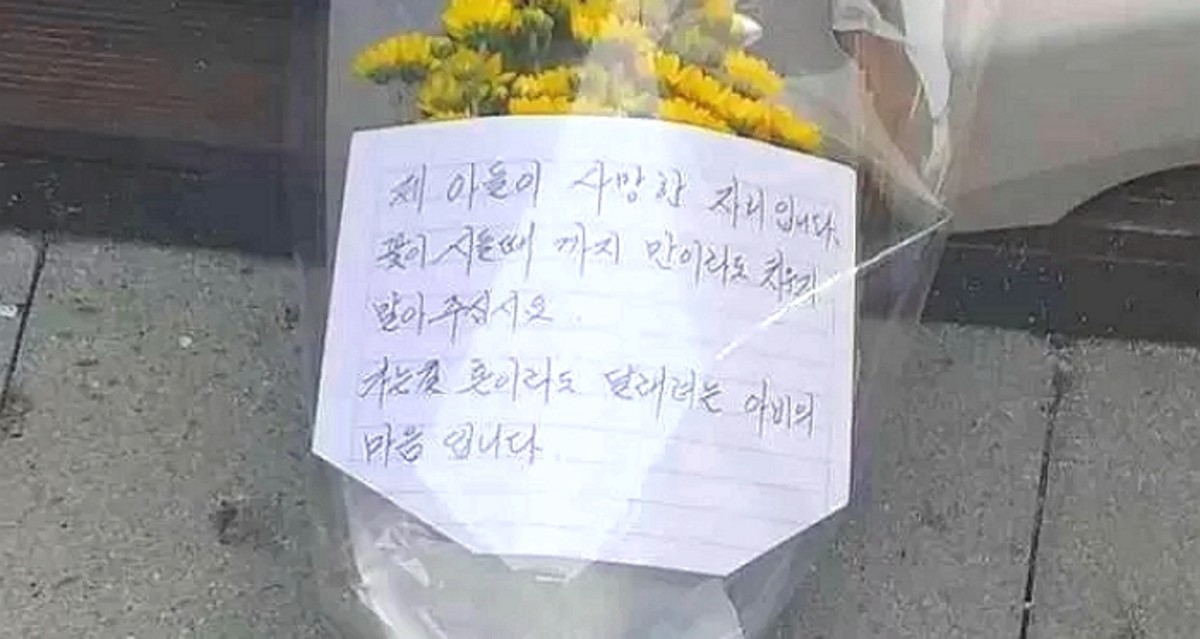 제 아들이 사망한 자리입니다.
꽃이 시들때 까지 만이라도 치우지
말아 주십시오.
가는길 혼이라도 달래려는 아비의
마음 입니다.